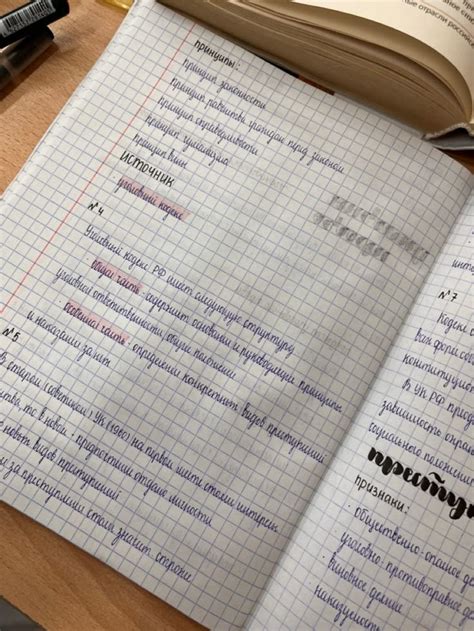 принципы:
принцип законности
принцип равенства граждан перед законом
принцип справедливости
принцип гуманизма
принцип вины
ИСТОЧНИК
уголовный кодекс
№4
Уголовный кодекс РФ имеет следующую структуру
общая часть - содержит основания и руководящие принципы
уголовной ответственности, общие положения
особенная часть - определения конкретных видов преступлений
и наказания за них
№5
В старом (советском) УК (1960) на первом месте стояли интересы
то в новой: предпочтении отдано личности
новых видов преступлений
за преступления стали значит. строже
№7
Кодекс
Всех форм
конституции
В УК РФ
зависимость
социального
престу
признаки:
· общественно-опасное
уголовно-противоправное
· виновное деяние
наказуемость
ные отрасли